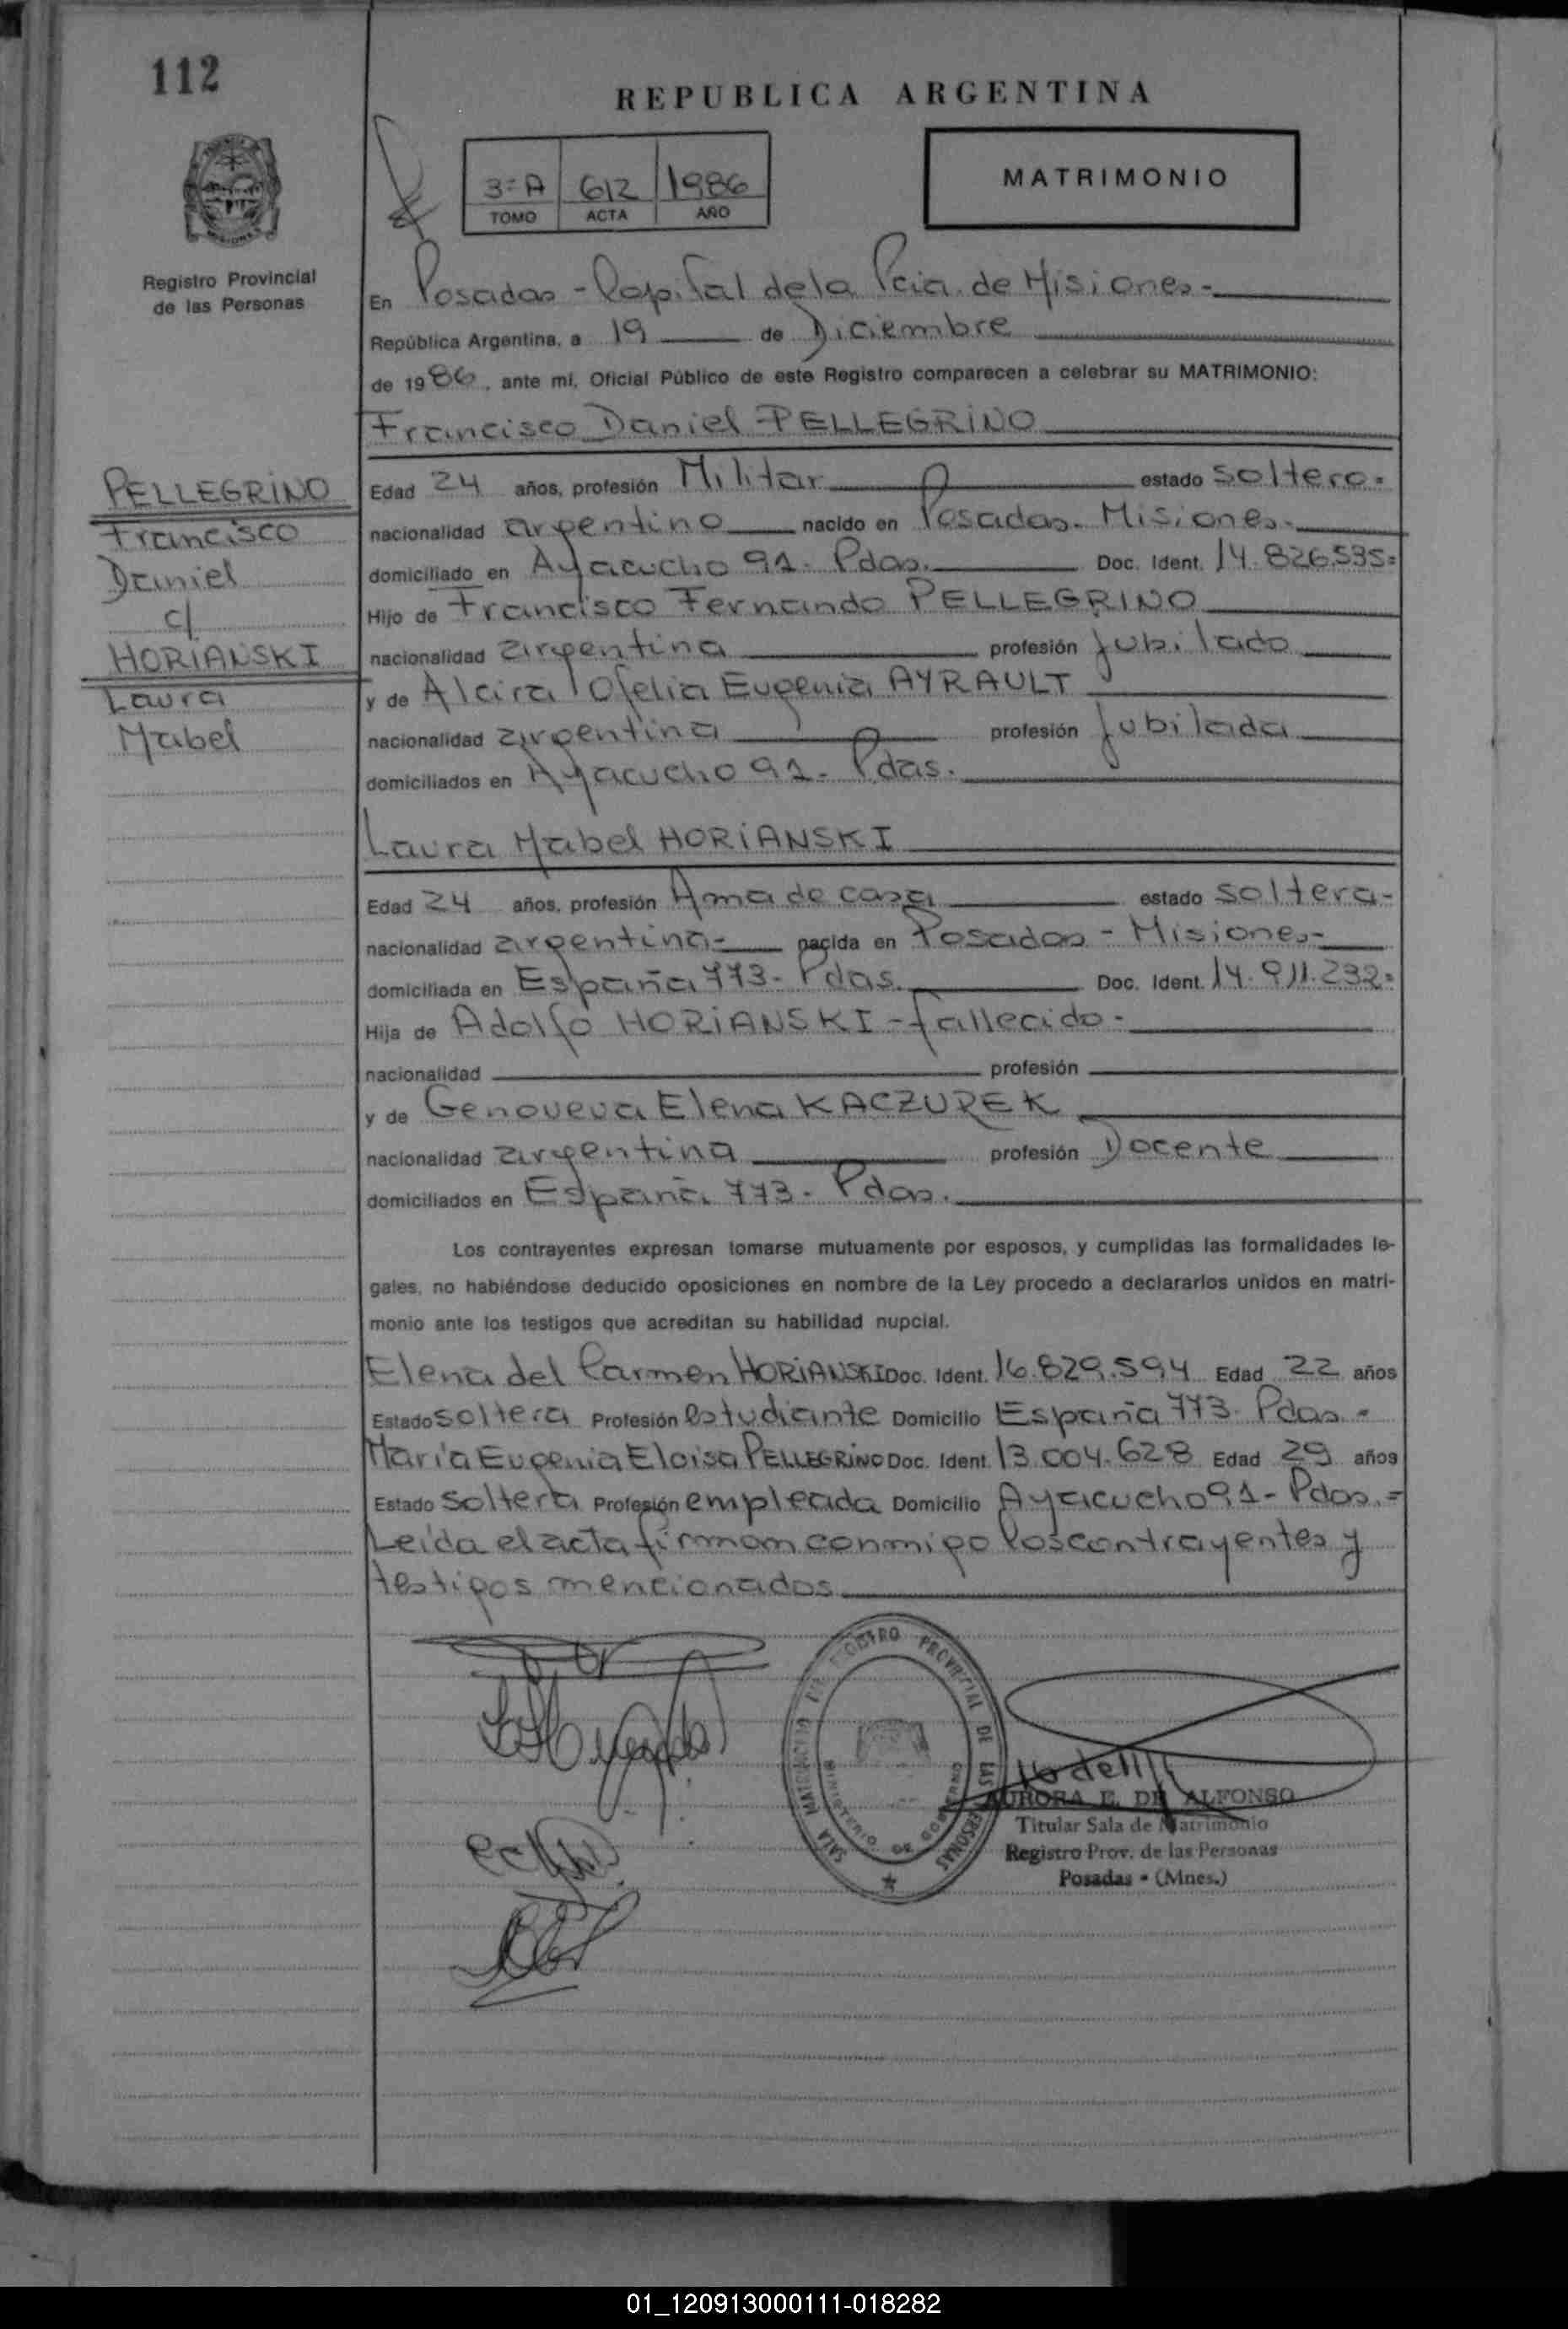 112
REPUBLICA ARGENTINA
3ª A 612 1986
TOMO ACTA AÑO
MATRIMONIO
Registro Provincial
de las Personas
En Posadas - Capital de la Pcia. de Misiones -
República Argentina, a 19 de Diciembre
de 1986, ante mí, Oficial Público de este Registro comparecen a celebrar su MATRIMONIO:
Francisco Daniel PELLEGRINO
PELLEGRINO
Francisco
Daniel
c/
HORIANSKI
Laura
Mabel
Edad 24 años, profesión Militar estado soltero=
nacionalidad argentino nacido en Posadas. Misiones.
domiciliado en Ayacucho 91. Pdas. Doc. Ident. 14.826.535=
Hijo de Francisco Fernando PELLEGRINO
nacionalidad argentina profesión Jubilado
y de Alcira Ofelia Eugenia AYRAULT
nacionalidad argentina profesión Jubilada
domiciliados en Ayacucho 91. Pdas.
Laura Mabel HORIANSKI
Edad 24 años, profesión Ama de casa estado soltera-
nacionalidad argentina- nacida en Posadas - Misiones-
domiciliada en España 773. Pdas. Doc. Ident. 14.911.232=
Hija de Adolfo HORIANSKI - fallecido-
nacionalidad profesión
y de Genoveva Elena KACZUREK
nacionalidad argentina profesión Docente
domiciliados en España 773. Pdas.
Los contrayentes expresan tomarse mutuamente por esposos, y cumplidas las formalidades le-
gales, no habiéndose deducido oposiciones en nombre de la Ley procedo a declararlos unidos en matri-
monio ante los testigos que acreditan su habilidad nupcial.
Elena del Carmen HORIANSKI Doc. Ident. 16.829.594 Edad 22 años
Estado soltera Profesión estudiante Domicilio España 773. Pdas -
María Eugenia Eloisa PELLEGRINO Doc. Ident. 13.004.628 Edad 29 años
Estado soltera Profesión empleada Domicilio Ayacucho 91- Pdas.=
Leída el acta firman conmigo los contrayentes y
testigos mencionados
REGISTRO PROVINCIAL DE LAS PERSONAS
SALA MATRIMONIO
MINISTERIO DE GOBIERNO
AURORA E. DE ALFONSO
Titular Sala de Matrimonio
Registro Prov. de las Personas
Posadas - (Mnes.)
01_120913000111-018282